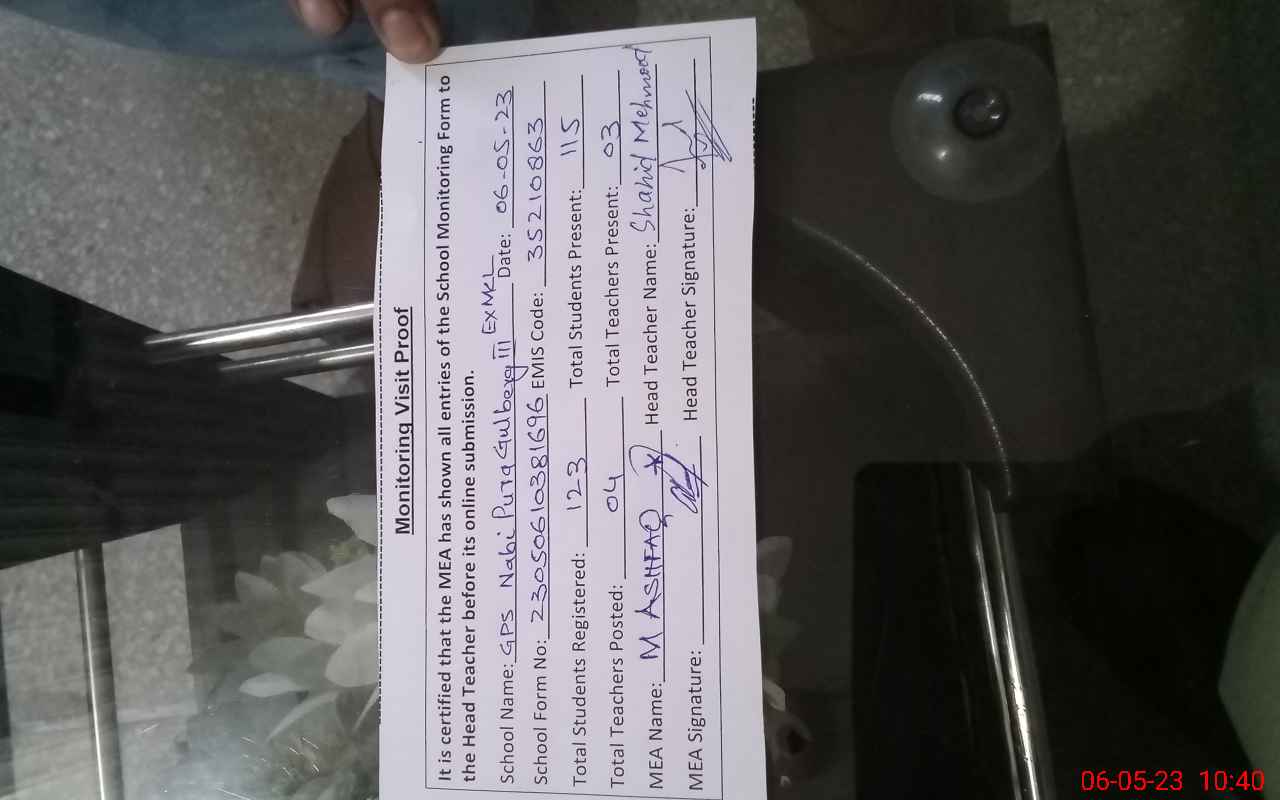 Monitoring Visit Proof
It is certified that the MEA has shown all entries of the School Monitoring Form to
the Head Teacher before its online submission.
School Name: GPS Nabi Pura Gulberg III EX MCL Date: 06-05-23
School Form No: 23050610381696 EMIS Code: 35210863
Total Students Registered: 123 Total Students Present: 115
Total Teachers Posted: 04 Total Teachers Present: 03
MEA Name: M ASHFAQ Head Teacher Name: Shahid Mehmood
MEA Signature: Head Teacher Signature:
06-05-23 10:40